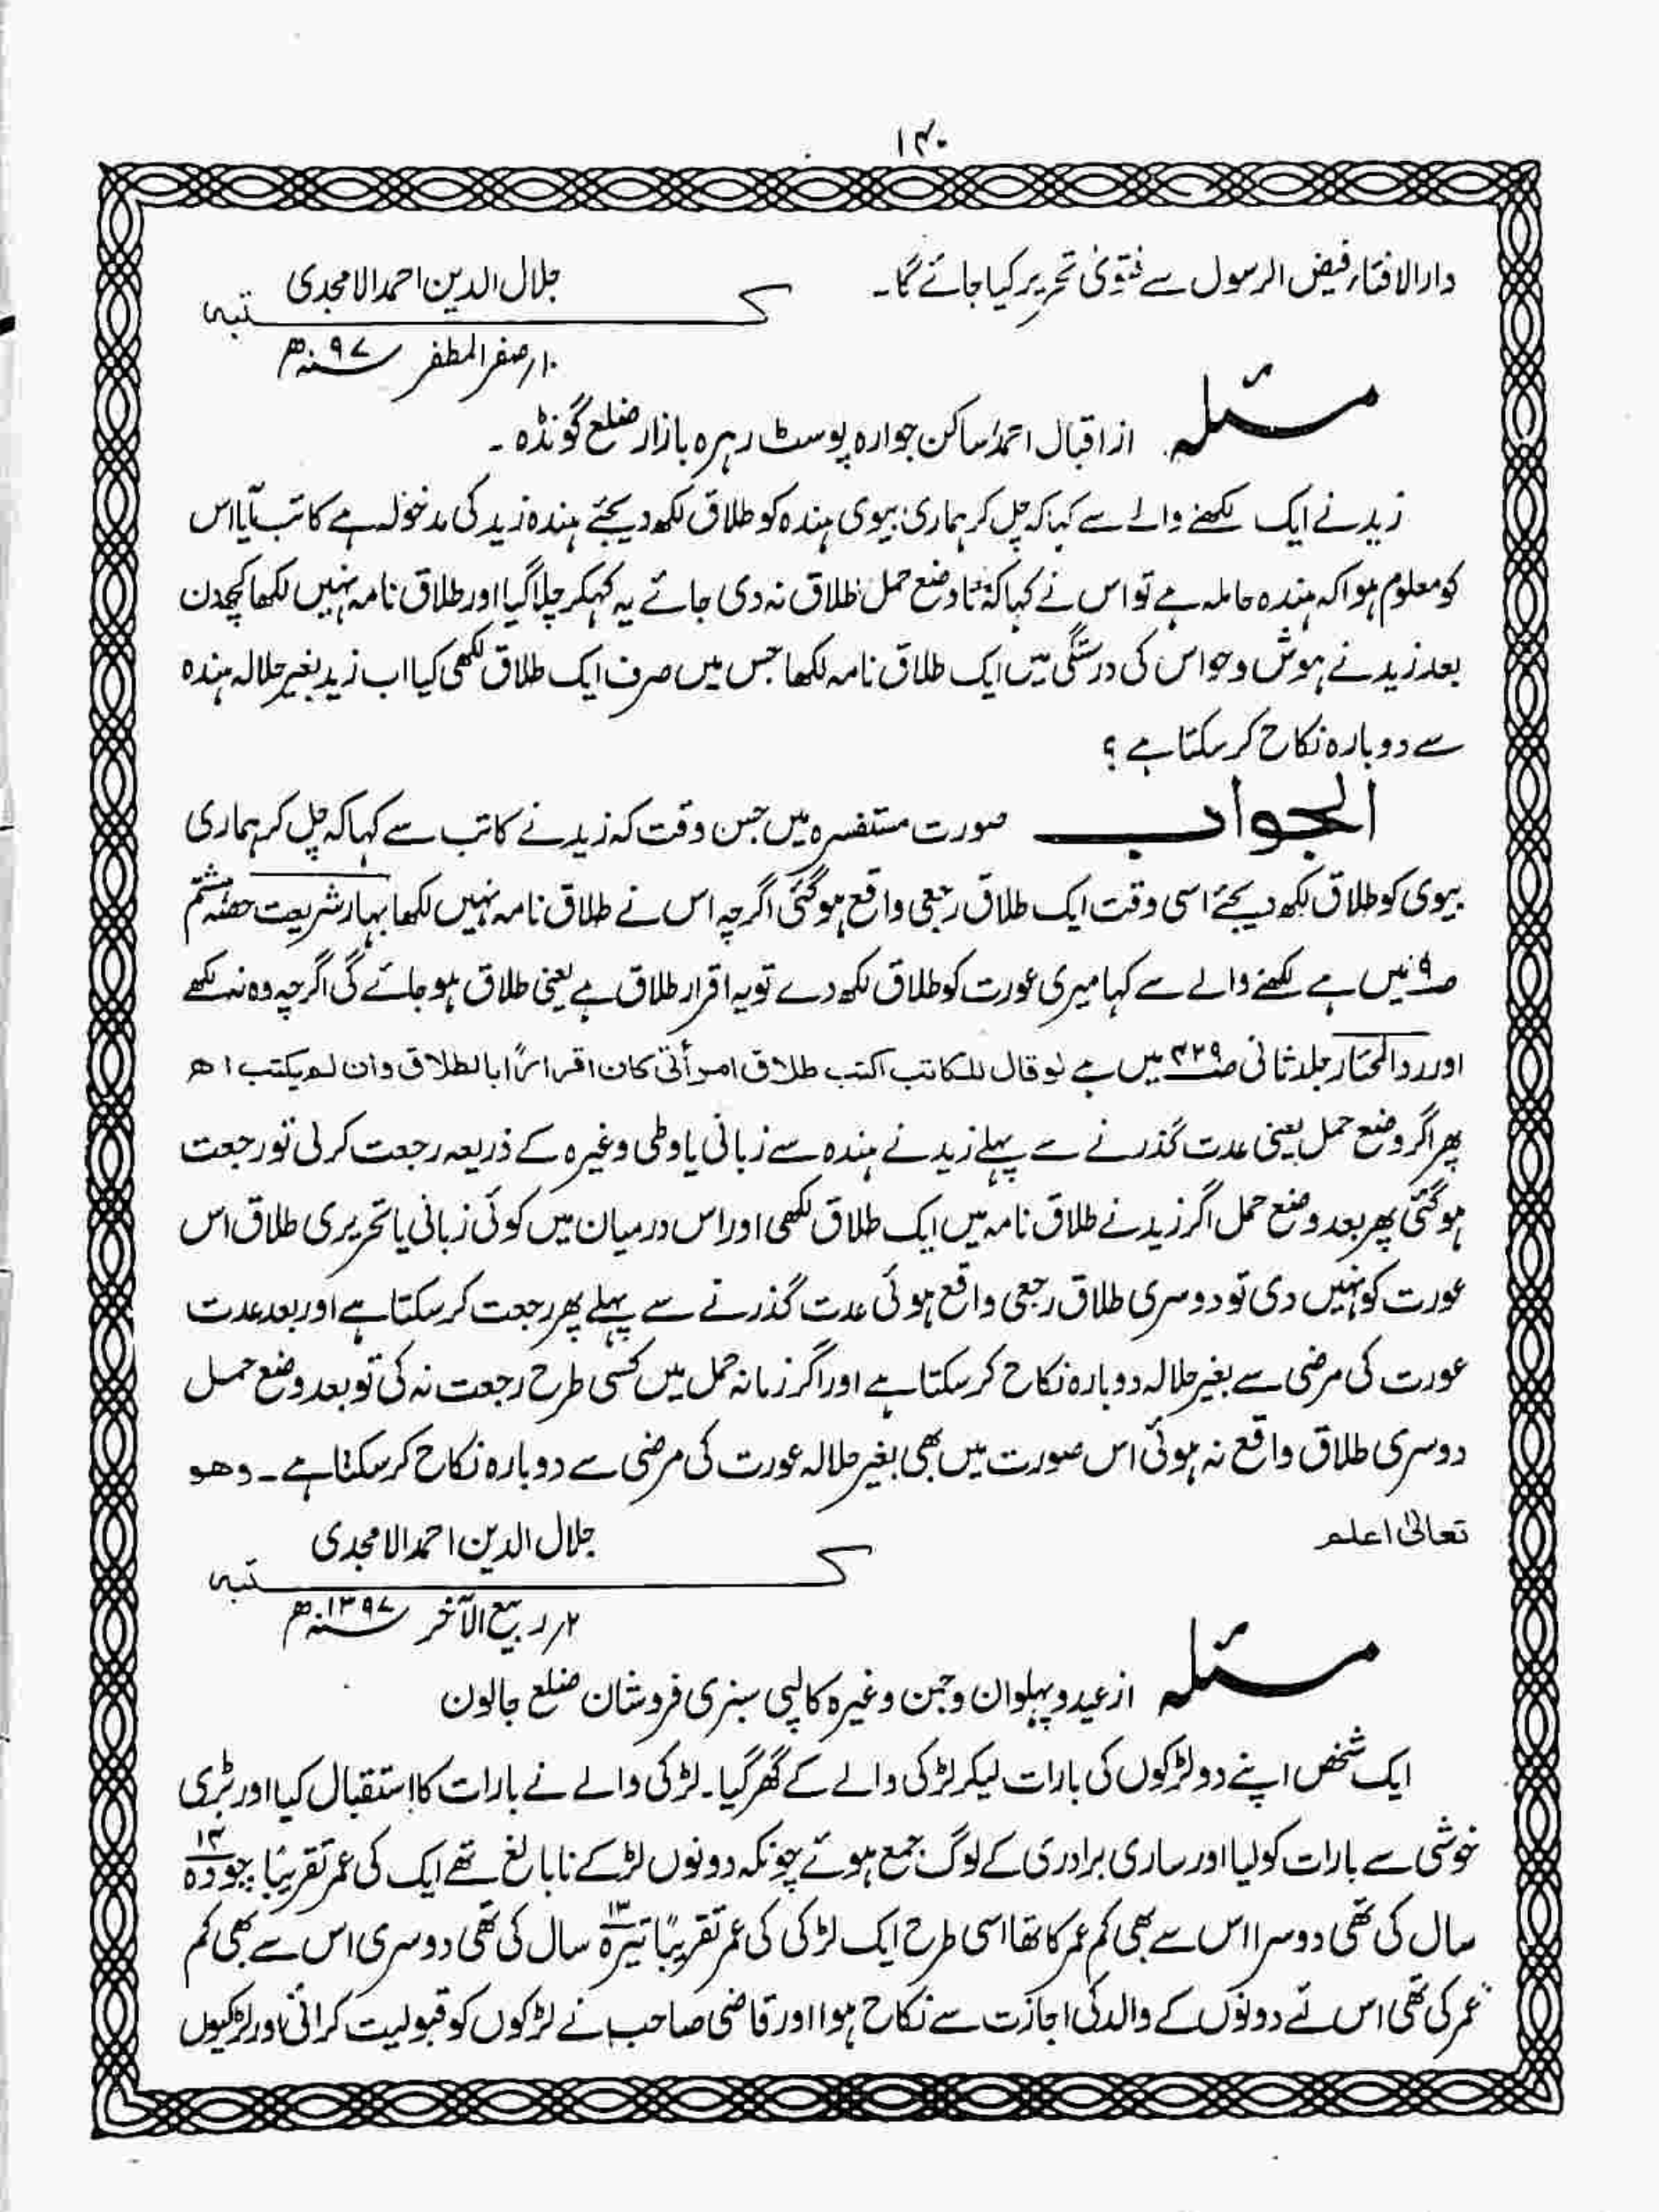 ۱۴۰
دارالافتاء فیض الرسول سے فتویٰ تحریر کیا جائے گا۔
جلال الدین احمد الامجدی
کتبہ
۱۰؍صفر المظفر ۹۷ھ
مسئلہ از اقبال احمد ساکن جوارہ پوسٹ رہرہ بازار ضلع گونڈہ ۔
زید نے ایک لکھنے والے سے کہا کہ چل کر ہماری بیوی ہندہ کو طلاق لکھ دیجئے ہندہ زید کی مدخولہ ہے کاتب آیا اس
کو معلوم ہوا کہ ہندہ حاملہ ہے تو اس نے کہا کہ تا وضع حمل طلاق نہ دی جائے یہ کہکر چلا گیا اور طلاق نامہ نہیں لکھا کچھ دن
بعد زید نے ہوش و حواس کی درستگی میں ایک طلاق نامہ لکھا جس میں صرف ایک طلاق لکھی کیا اب زید بغیر حلالہ ہندہ
سے دوبارہ نکاح کر سکتا ہے ؟
الجواب صورت مستفسرہ میں جس وقت کہ زید نے کاتب سے کہا کہ چل کر ہماری
بیوی کو طلاق لکھ دیجئے اسی وقت ایک طلاق رجعی واقع ہو گئی اگرچہ اس نے طلاق نامہ نہیں لکھا بہار شریعت حصہ ہشتم
ص۹ میں ہے لکھنے والے سے کہا میری عورت کو طلاق لکھ دے تو یہ اقرار طلاق ہے یعنی طلاق ہو جائے گی اگرچہ وہ نہ لکھے
اور ردالمحتار جلد ثانی ص۴۲۹ میں ہے لو قال للکاتب اکتب طلاق امرأتی کان اقرارًا بالطلاق وان لم یکتب ا ھ
پھر اگر وضع حمل یعنی عدت گذرنے سے پہلے زید نے ہندہ سے زبانی یا وطی وغیرہ کے ذریعہ رجعت کر لی تو رجعت
ہو گئی پھر بعد وضع حمل اگر زید نے طلاق نامہ میں ایک طلاق لکھی اور اس درمیان میں کوئی زبانی یا تحریری طلاق اس
عورت کو نہیں دی تو دوسری طلاق رجعی واقع ہوئی عدت گذرنے سے پہلے پھر رجعت کر سکتا ہے اور بعد عدت
عورت کی مرضی سے بغیر حلالہ دوبارہ نکاح کر سکتا ہے اور اگر زمانہ حمل میں کسی طرح رجعت نہ کی تو بعد وضع حمل
دوسری طلاق واقع نہ ہوئی اس صورت میں بھی بغیر حلالہ عورت کی مرضی سے دوبارہ نکاح کر سکتا ہے ۔ وھو
تعالیٰ اعلم
جلال الدین احمد الامجدی
کتبہ
۲؍ربیع الآخر ۱۳۹۷ھ
مسئلہ از عیدو پہلوان و جمن وغیرہ کالپی سبزی فروشان ضلع جالون
ایک شخص اپنے دو لڑکوں کی بارات لیکر لڑکی والے کے گھر گیا۔ لڑکی والے نے بارات کا استقبال کیا اور بڑی
خوشی سے بارات کو لیا اور ساری برادری کے لوگ جمع ہوئے چونکہ دونوں لڑکے نابالغ تھے ایک کی عمر تقریبًا چودہ ۱۴
سال کی تھی دوسرا اس سے بھی کم عمر کا تھا اسی طرح ایک لڑکی کی عمر تقریبًا تیرہ ۱۳ سال کی تھی دوسری اس سے بھی کم
عمر کی تھی اس لئے دونوں کے والد کی اجازت سے نکاح ہوا اور قاضی صاحب نے لڑکوں کو قبولیت کرائی اور لڑکیوں